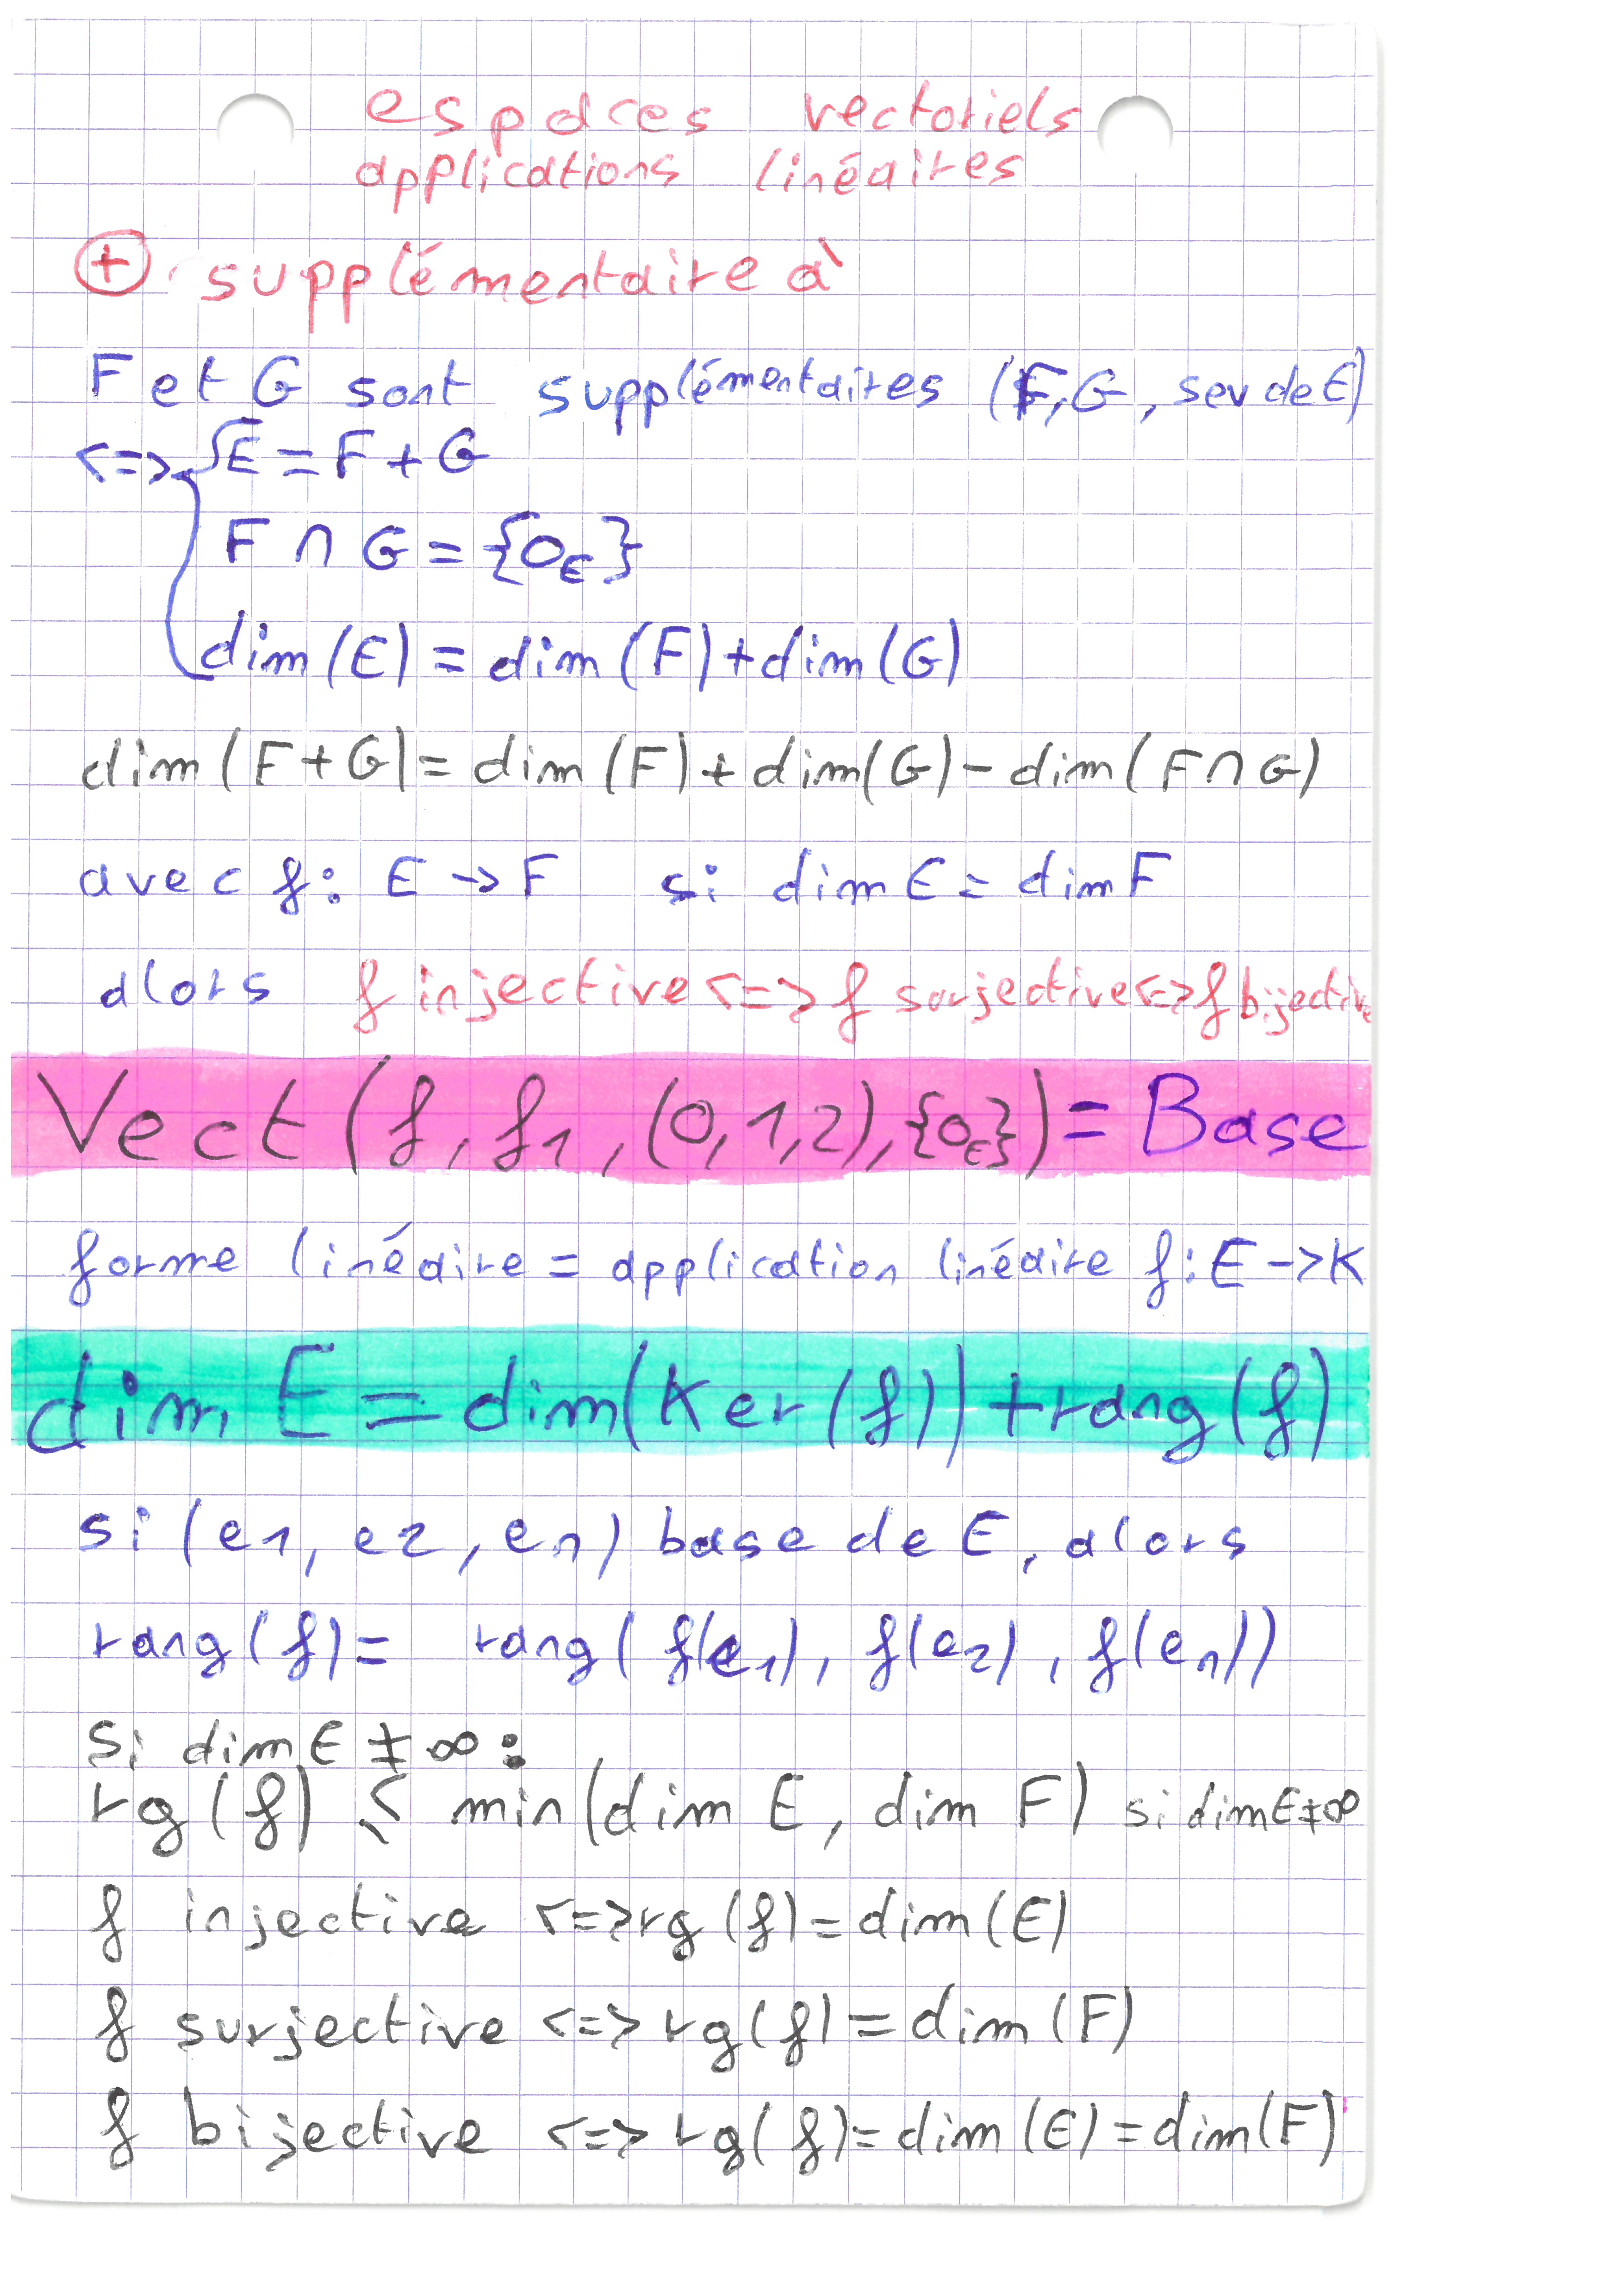 espaces vectoriels
applications linéaires
⊕ supplémentaire à
F et G sont supplémentaires (F, G, sev de E)
<=> { E = F + G
F ∩ G = {0_E}
dim (E) = dim (F) + dim (G)
dim (F + G) = dim (F) + dim(G) - dim (F ∩ G)
avec f : E -> F si dim E = dim F
alors f injective <=> f surjective <=> f bijective
Vect (f, f1, (0, 1, 2), {0_E}) = Base
forme linéaire = application linéaire f : E -> K
dim E = dim(Ker (f)) + rang (f)
si (e1, e2, en) base de E, alors
rang (f) = rang ( f(e1), f(e2), f(en))
Si dim E ≠ ∞ :
rg (f) ≤ min (dim E, dim F) si dim E ≠ ∞
f injective <=> rg (f) = dim (E)
f surjective <=> rg (f) = dim (F)
f bijective <=> rg (f) = dim (E) = dim (F)